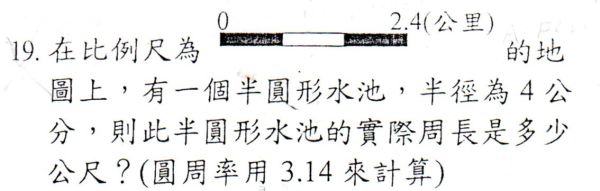 0 2.4(公里)
19. 在比例尺為 的地
圖上，有一個半圓形水池，半徑為 4 公
分，則此半圓形水池的實際周長是多少
公尺？(圓周率用 3.14 來計算)